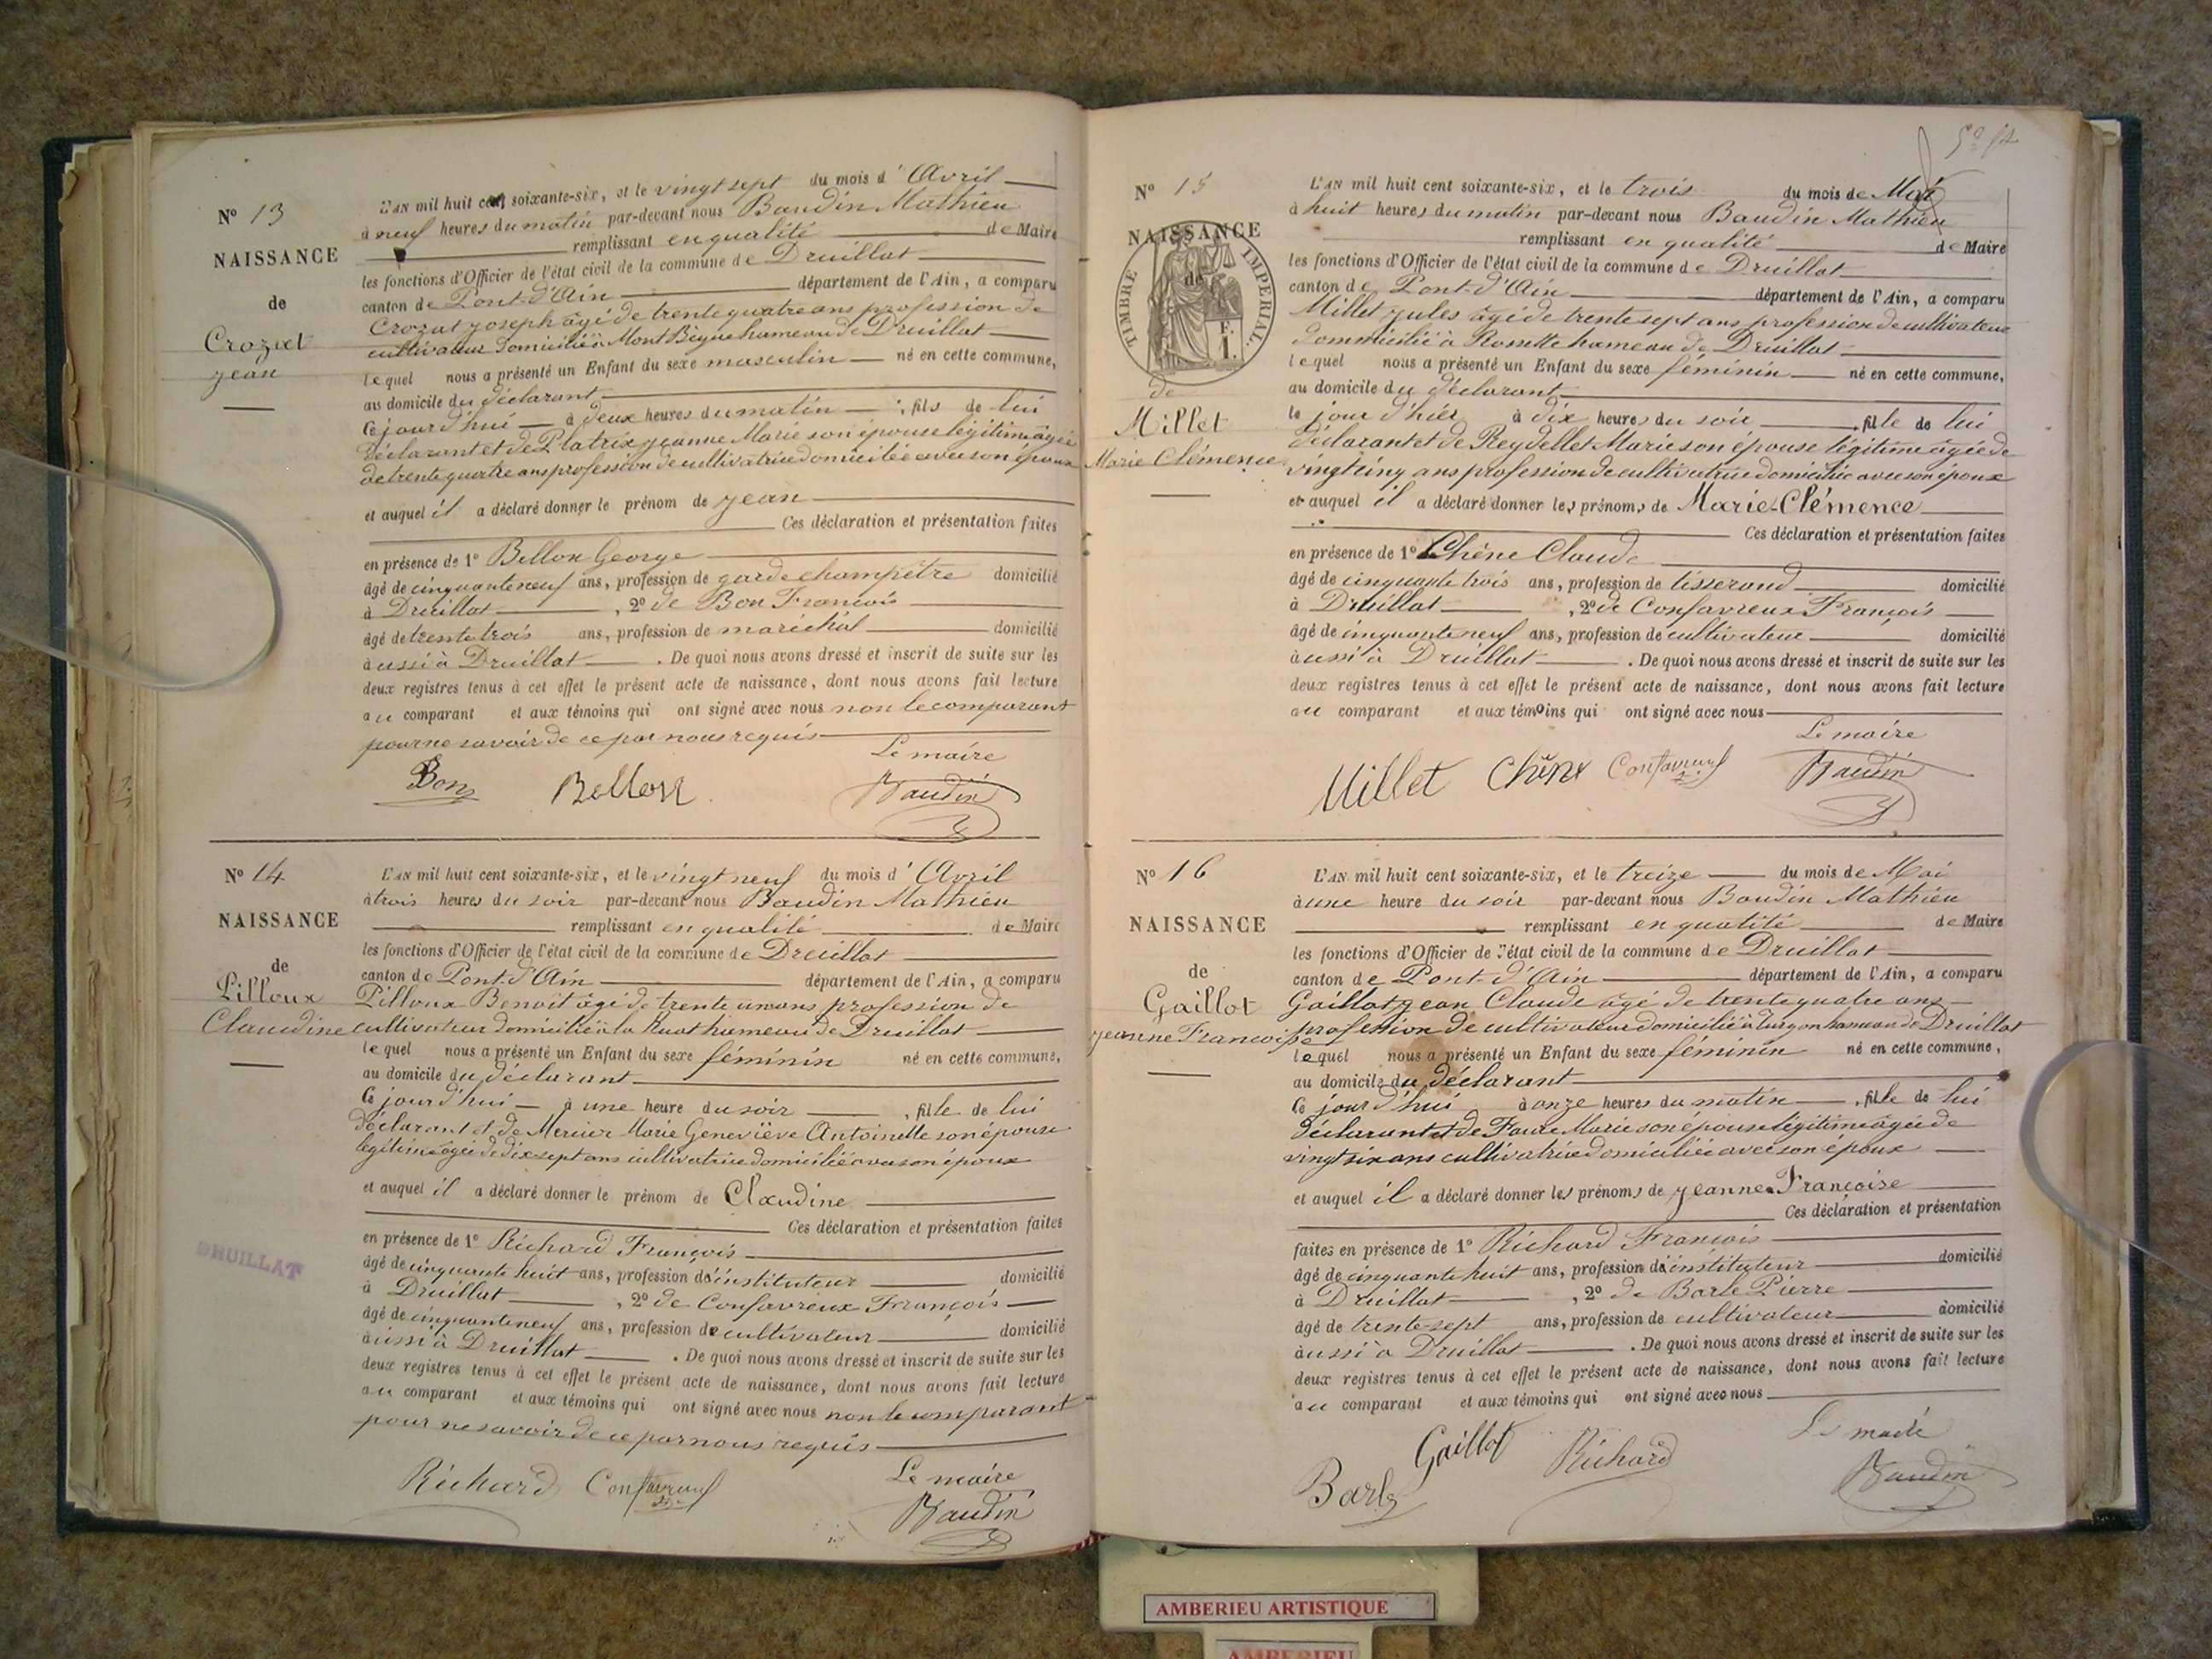 N° 13
NAISSANCE
de
Crozat
jean
L'AN mil huit cent soixante-six, et le vingt sept du mois d'Avril
à neuf heures du matin par-devant nous Baudin Mathieu
remplissant en qualité de Maire
les fonctions d'Officier de l'état civil de la commune de Druillat
canton de Pont-d'Ain département de l'Ain, a comparu
Crozat joseph âgé de trente quatre ans profession de
cultivateur domicilié à Mont Bègue hameau de Druillat
lequel nous a présenté un Enfant du sexe masculin né en cette commune,
au domicile du déclarant
Ce jour d'hui à deux heures du matin, fils de lui
déclarant et de Platrix jeanne Marie son épouse légitime âgée
de trente quatre ans profession de cultivatrice domiciliée avec son époux
et auquel il a déclaré donner le prénom de jean
Ces déclaration et présentation faites
en présence de 1° Bellon George
âgé de cinquante neuf ans, profession de garde champêtre domicilié
à Druillat, 2° de Bon François
âgé de trente trois ans, profession de maréchal domicilié
aussi à Druillat. De quoi nous avons dressé et inscrit de suite sur les
deux registres tenus à cet effet le présent acte de naissance, dont nous avons fait lecture
au comparant et aux témoins qui ont signé avec nous non le comparant
pour ne savoir de ce par nous requis
Le maire
Bon Bellon Baudin
N° 14
NAISSANCE
de
Pilloux
Claudine
L'AN mil huit cent soixante-six, et le vingt neuf du mois d'Avril
à trois heures du soir par-devant nous Baudin Mathieu
remplissant en qualité de Maire
les fonctions d'Officier de l'état civil de la commune de Druillat
canton de Pont-d'Ain département de l'Ain, a comparu
Pilloux Benoit âgé de trente un ans profession de
cultivateur domicilié à la Ruat hameau de Druillat
lequel nous a présenté un Enfant du sexe féminin né en cette commune,
au domicile du déclarant
Ce jour d'hui à une heure du soir, fille de lui
déclarant et de Mercier Marie Geneviève Antoinette son épouse
légitime âgée de dix sept ans cultivatrice domiciliée avec son époux
et auquel il a déclaré donner le prénom de Claudine
Ces déclaration et présentation faites
en présence de 1° Richard François
âgé de cinquante huit ans, profession d'instituteur domicilié
à Druillat, 2° de Confavreux François
âgé de cinquante neuf ans, profession de cultivateur domicilié
aussi à Druillat. De quoi nous avons dressé et inscrit de suite sur les
deux registres tenus à cet effet le présent acte de naissance, dont nous avons fait lecture
au comparant et aux témoins qui ont signé avec nous non le comparant
pour ne savoir de ce par nous requis
Le maire
Richard Confavreux Baudin
DRUILLAT
N° 15
NAISSANCE
de
TIMBRE IMPERIAL
F. 1.
de
Millet
Marie Clémence
L'AN mil huit cent soixante-six, et le trois du mois de Mai
à huit heures du matin par-devant nous Baudin Mathieu
remplissant en qualité de Maire
les fonctions d'Officier de l'état civil de la commune de Druillat
canton de Pont-d'Ain département de l'Ain, a comparu
Millet jules âgé de trente sept ans profession de cultivateur
dommicilié à Rossette hameau de Druillat
lequel nous a présenté un Enfant du sexe féminin né en cette commune,
au domicile du déclarant
le jour d'hier à dix heures du soir, fille de lui
déclarant et de Reydellet Marie son épouse légitime âgée de
vingt cinq ans profession de cultivatrice domiciliée avec son époux
et auquel il a déclaré donner les prénoms de Marie-Clémence
Ces déclaration et présentation faites
en présence de 1° Chêne Claude
âgé de cinquante trois ans, profession de tisserand domicilié
à Druillat, 2° de Confavreux François
âgé de cinquante neuf ans, profession de cultivateur domicilié
aussi à Druillat. De quoi nous avons dressé et inscrit de suite sur les
deux registres tenus à cet effet le présent acte de naissance, dont nous avons fait lecture
au comparant et aux témoins qui ont signé avec nous
Le maire
Millet Chêne Confavreux Baudin
N° 16
NAISSANCE
de
Gaillot
jeanne Françoise
L'AN mil huit cent soixante-six, et le treize du mois de Mai
à une heure du soir par-devant nous Baudin Mathieu
remplissant en qualité de Maire
les fonctions d'Officier de l'état civil de la commune de Druillat
canton de Pont-d'Ain département de l'Ain, a comparu
Gaillot jean Claude âgé de trente quatre ans
profession de cultivateur domicilié à Turgon hameau de Druillat
lequel nous a présenté un Enfant du sexe féminin né en cette commune,
au domicile du déclarant
Ce jour d'hui à onze heures du matin, fille de lui
déclarant et de Faure Marie son épouse légitime âgée de
vingt six ans cultivatrice domiciliée avec son époux
et auquel il a déclaré donner les prénoms de jeanne Françoise
Ces déclaration et présentation
faites en présence de 1° Richard François
âgé de cinquante huit ans, profession d'instituteur domicilié
à Druillat, 2° de Barle Pierre
âgé de trente-sept ans, profession de cultivateur domicilié
aussi à Druillat. De quoi nous avons dressé et inscrit de suite sur les
deux registres tenus à cet effet le présent acte de naissance, dont nous avons fait lecture
au comparant et aux témoins qui ont signé avec nous
Le maire
Barle Gaillot Richard Baudin
AMBERIEU ARTISTIQUE
AMBERIEU